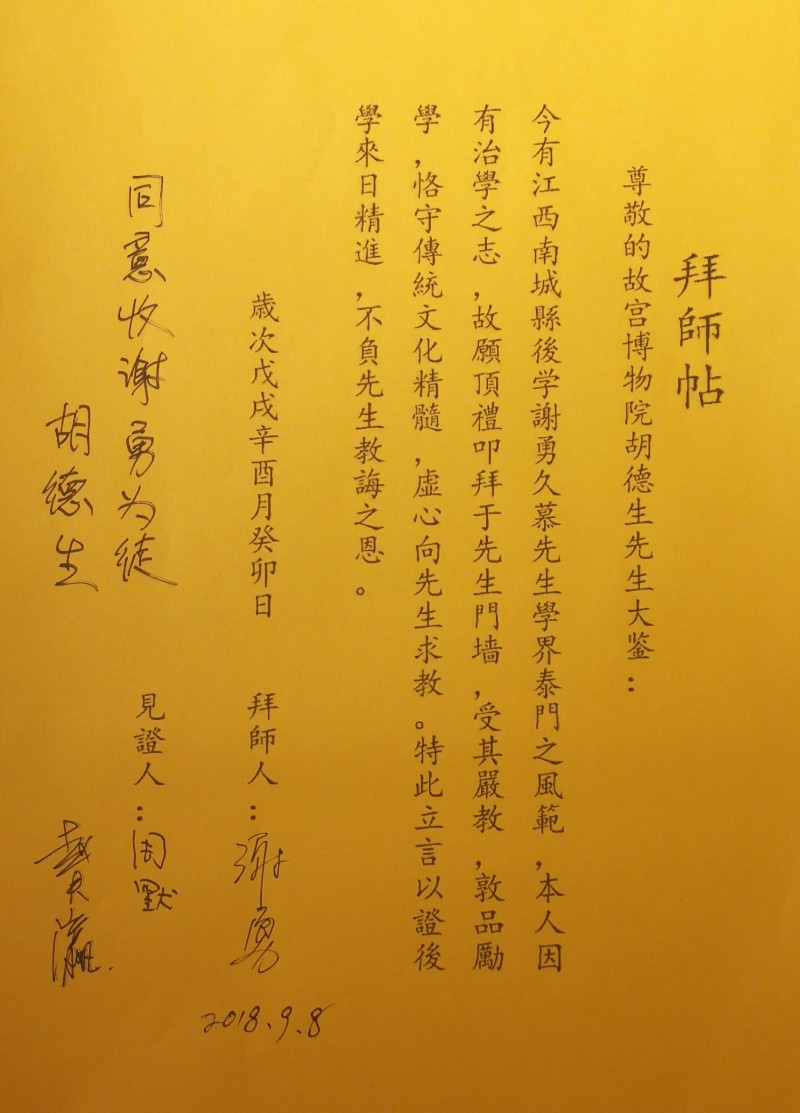 拜師帖
尊敬的故宫博物院胡德生先生大鉴：
今有江西南城縣後学謝勇久慕先生學界泰門之風範，本人因
有治學之志，故願頂禮叩拜于先生門墙，受其嚴教，敦品勵
學，恪守傳統文化精髓，虛心向先生求教。特此立言以證後
學來日精進，不負先生教誨之恩。
歲次戊戌辛酉月癸卯日
拜師人：谢勇
2018.9.8
同意收谢勇为徒
胡德生
見證人：周默